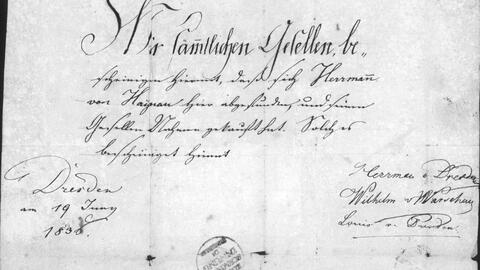 Wir sämtlichen Gesellen, be„
scheinigen hiermit, daß sich Herrmann
von Haynau hier abgefunden, und seinen
Gesellen Nahmen gekauft hat. Solches
bescheiniget hiermit
Dresden
am 19 Juny
1838.
Herrman v Dresden
Wilhelm v Warschau
Louis v. Dresden.